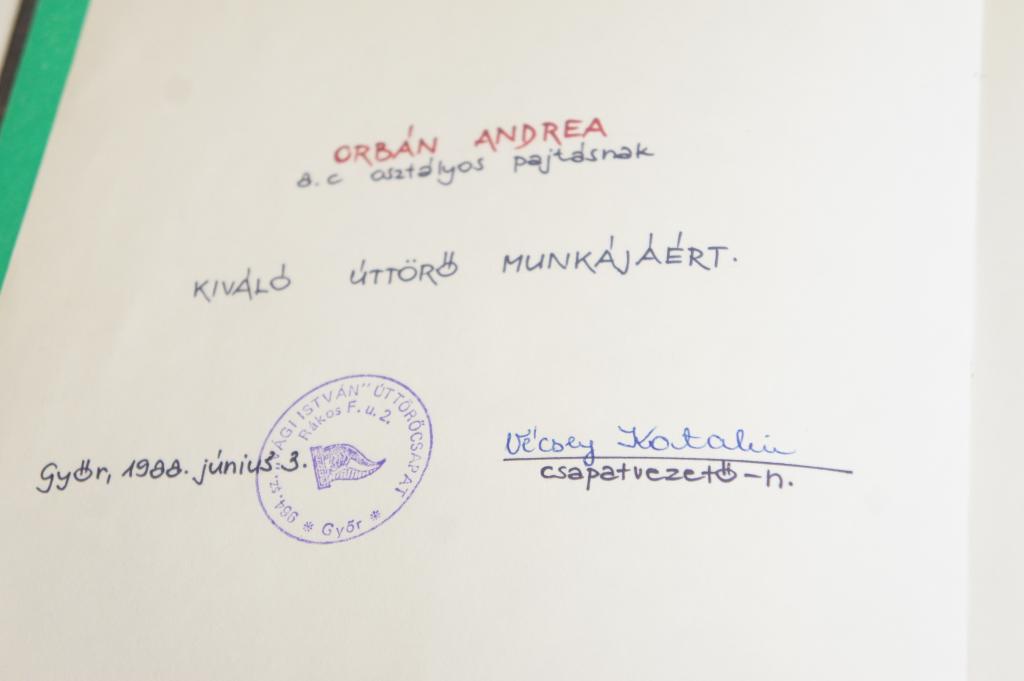 ORBÁN ANDREA
8.c osztályos pajtásnak
KIVÁLÓ ÚTTÖRŐ MUNKÁJÁÉRT.
Győr, 1988. június 3.
964. sz. „SÁGI ISTVÁN” ÚTTÖRŐCSAPAT
Rákos F. u. 2.
* Győr *
Vécsey Katalin
csapatvezető-h.